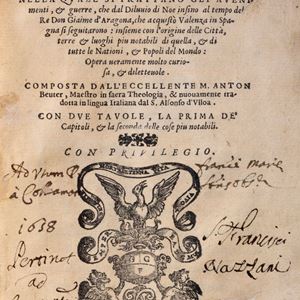 NELLA QVALE SI TRATTANO GLI AVENI-
menti, & guerre, che dal Diluuio di Noe insino al tempo del
Re Don Giaime d'Aragona, che acquistò Valenza in Spa-
gna si seguitarono: insieme con l'origine delle Città,
terre & luoghi piu notabili di quella, & di
tutte le Nationi, & Popoli del Mondo:
Opera ueramente molto curio-
sa, & diletteuole.
COMPOSTA DALL'ECCELLENTE M. ANTON
Beuter, Maestro in sacra Theologia, & nuouamente tra
dotta in lingua Italiana dal S. Alfonso d'Vlloa.
CON DVE TAVOLE, LA PRIMA DE'
Capitoli, & la seconda delle cose piu notabili.
CON PRIVILEGIO.
Ad vsum
franci marie
1638
S. Francisci
Pertinet
Nazzani
ad
G
F